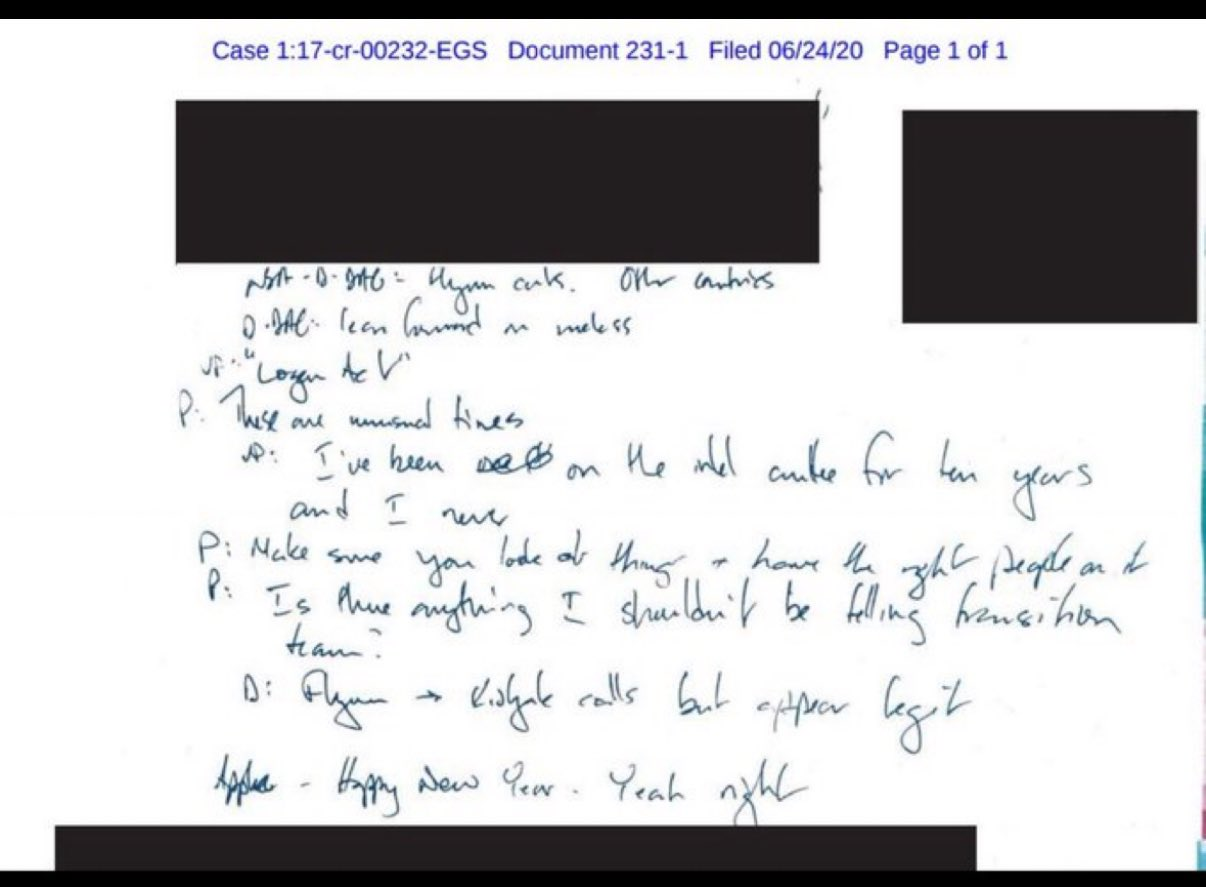 Case 1:17-cr-00232-EGS Document 231-1 Filed 06/24/20 Page 1 of 1
NSA-D-DAG: Flynn cuts. Other countries
D-DAG: lean forward on unclass
VP: "Logan Act"
P: These are unusual times
VP: I've been on the intel cmtee for ten years
and I never
P: Make sure you look at things + have the right people on it
P: Is there anything I shouldn't be telling transition
team?
D: Flynn → Kislyak calls but appear legit
- Happy New Year. Yeah right